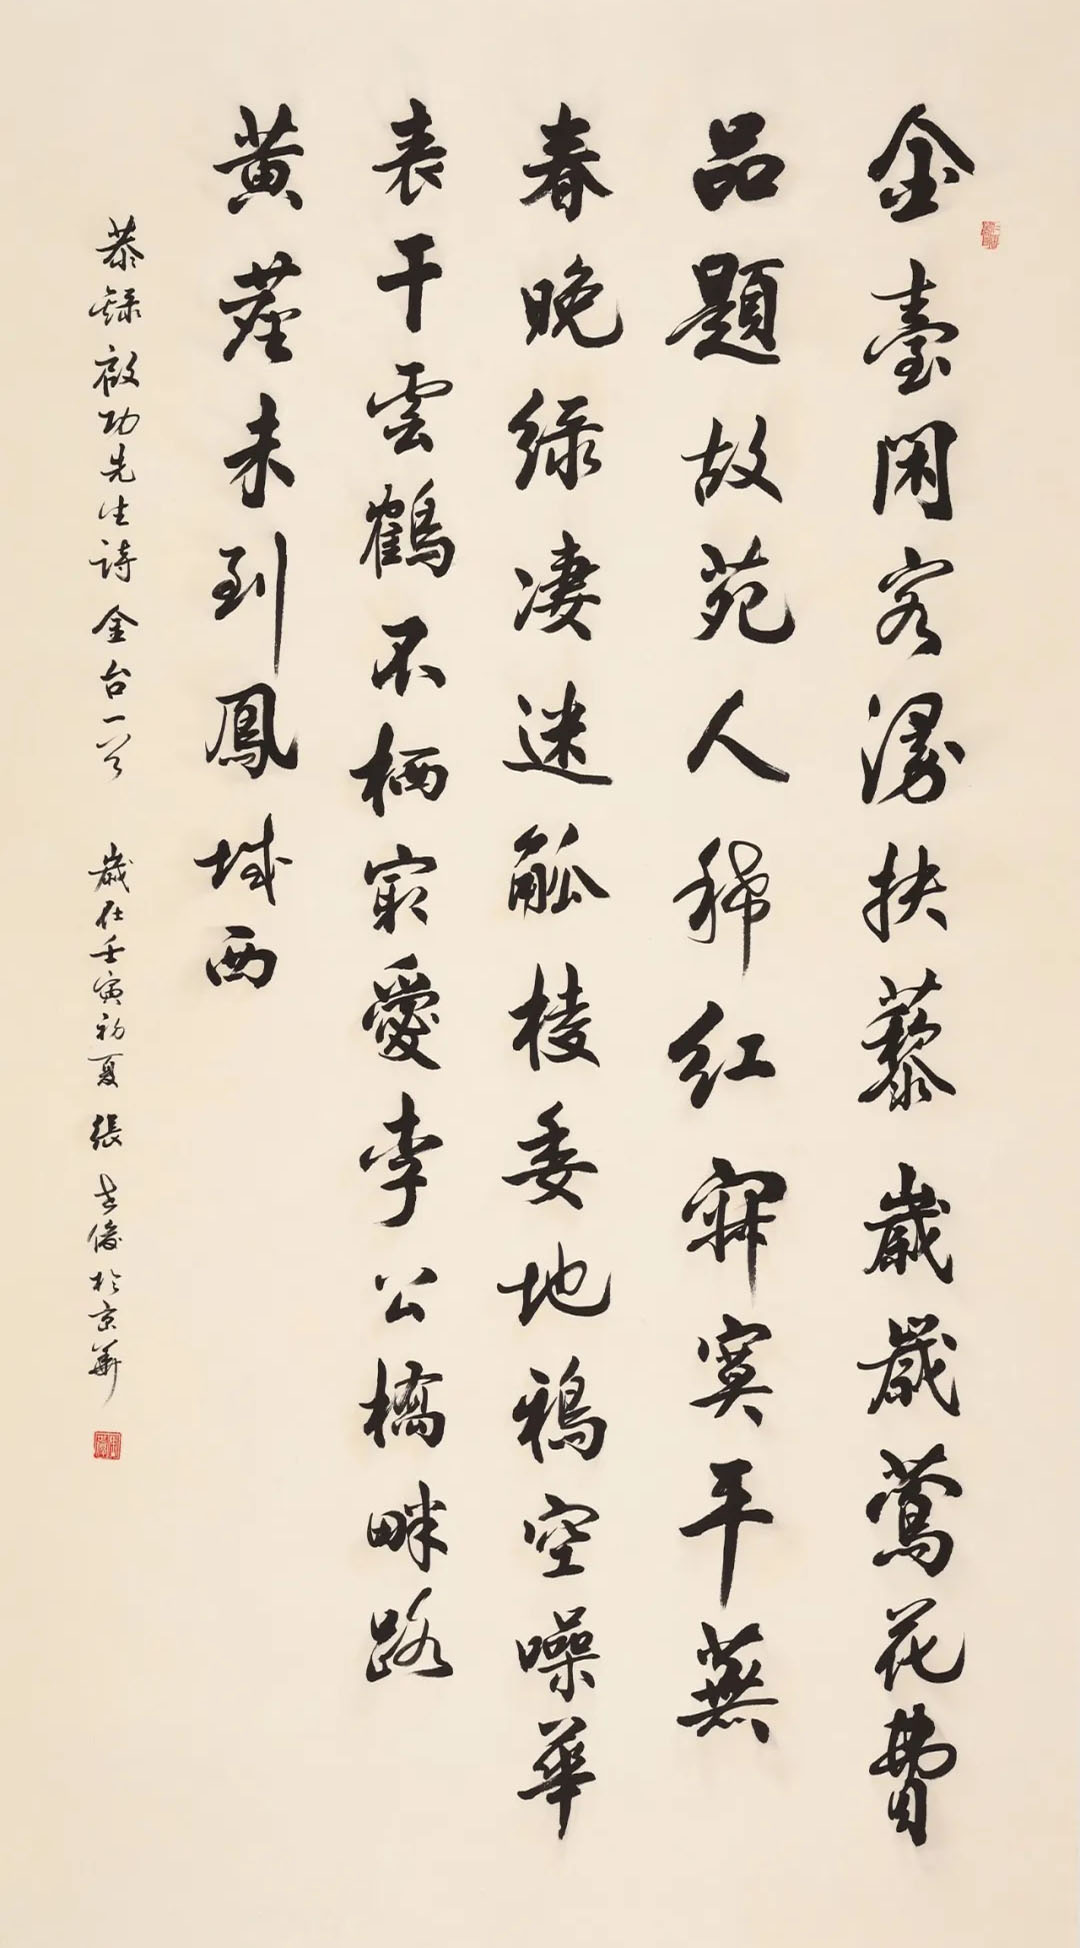 金臺閑客漫扶藜歲歲鶯花費
品題故苑人稀红寂寞平蕪
春晚绿凄迷觚棱委地鴉空噪華
表干雲鶴不栖寂愛李公橋畔路
黄塵未到鳳城西
恭録啟功先生詩金台一首 歲在壬寅初夏 張志俊於京華